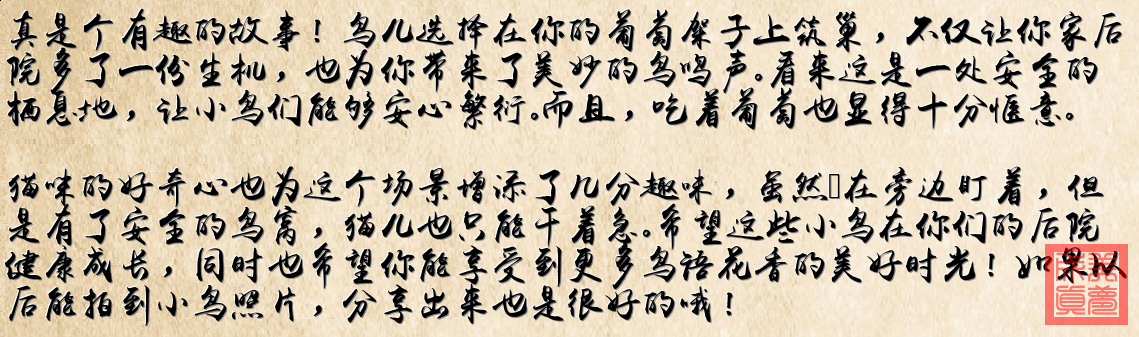 真是个有趣的故事！鸟儿选择在你的葡萄架子上筑巢，不仅让你家后
院多了一份生机，也为你带来了美妙的鸟鸣声。看来这是一处安全的
栖息地，让小鸟们能够安心繁衍。而且，吃着葡萄也显得十分惬意。
猫咪的好奇心也为这个场景增添了几分趣味，虽然在旁边盯着，但
是有了安全的鸟窝，猫儿也只能干着急。希望这些小鸟在你们的后院
健康成长，同时也希望你能享受到更多鸟语花香的美好时光！如果以
后能拍到小鸟照片，分享出来也是很好的哦！